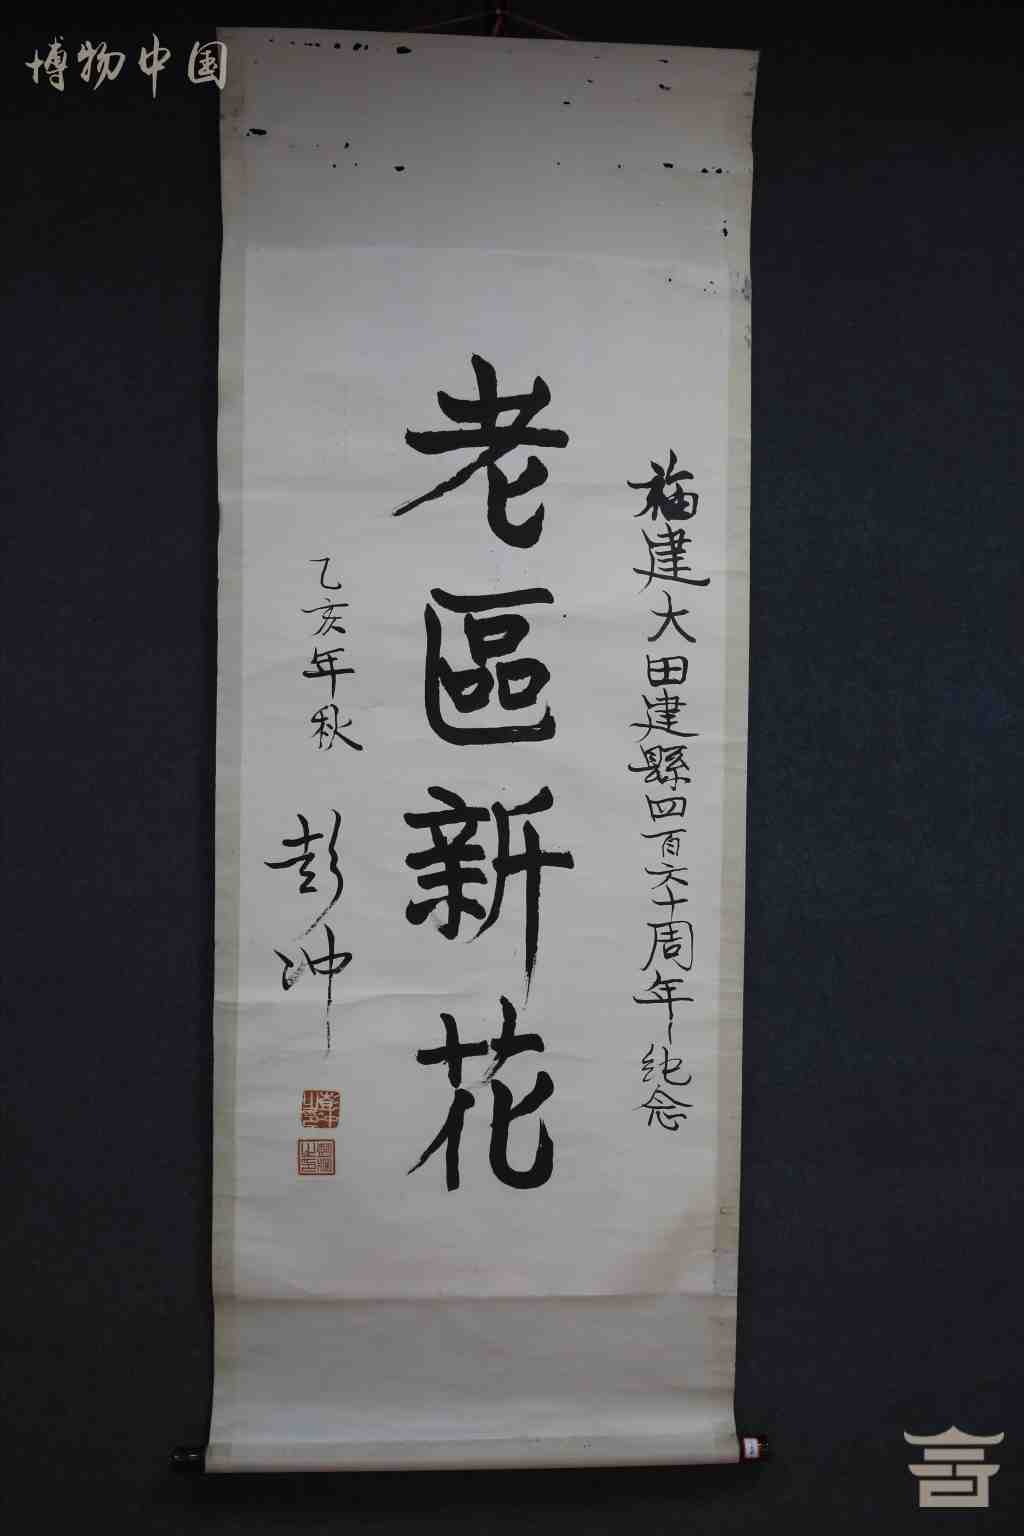 博物中国
福建大田建縣四百六十周年纪念
老區新花
乙亥年秋
彭冲